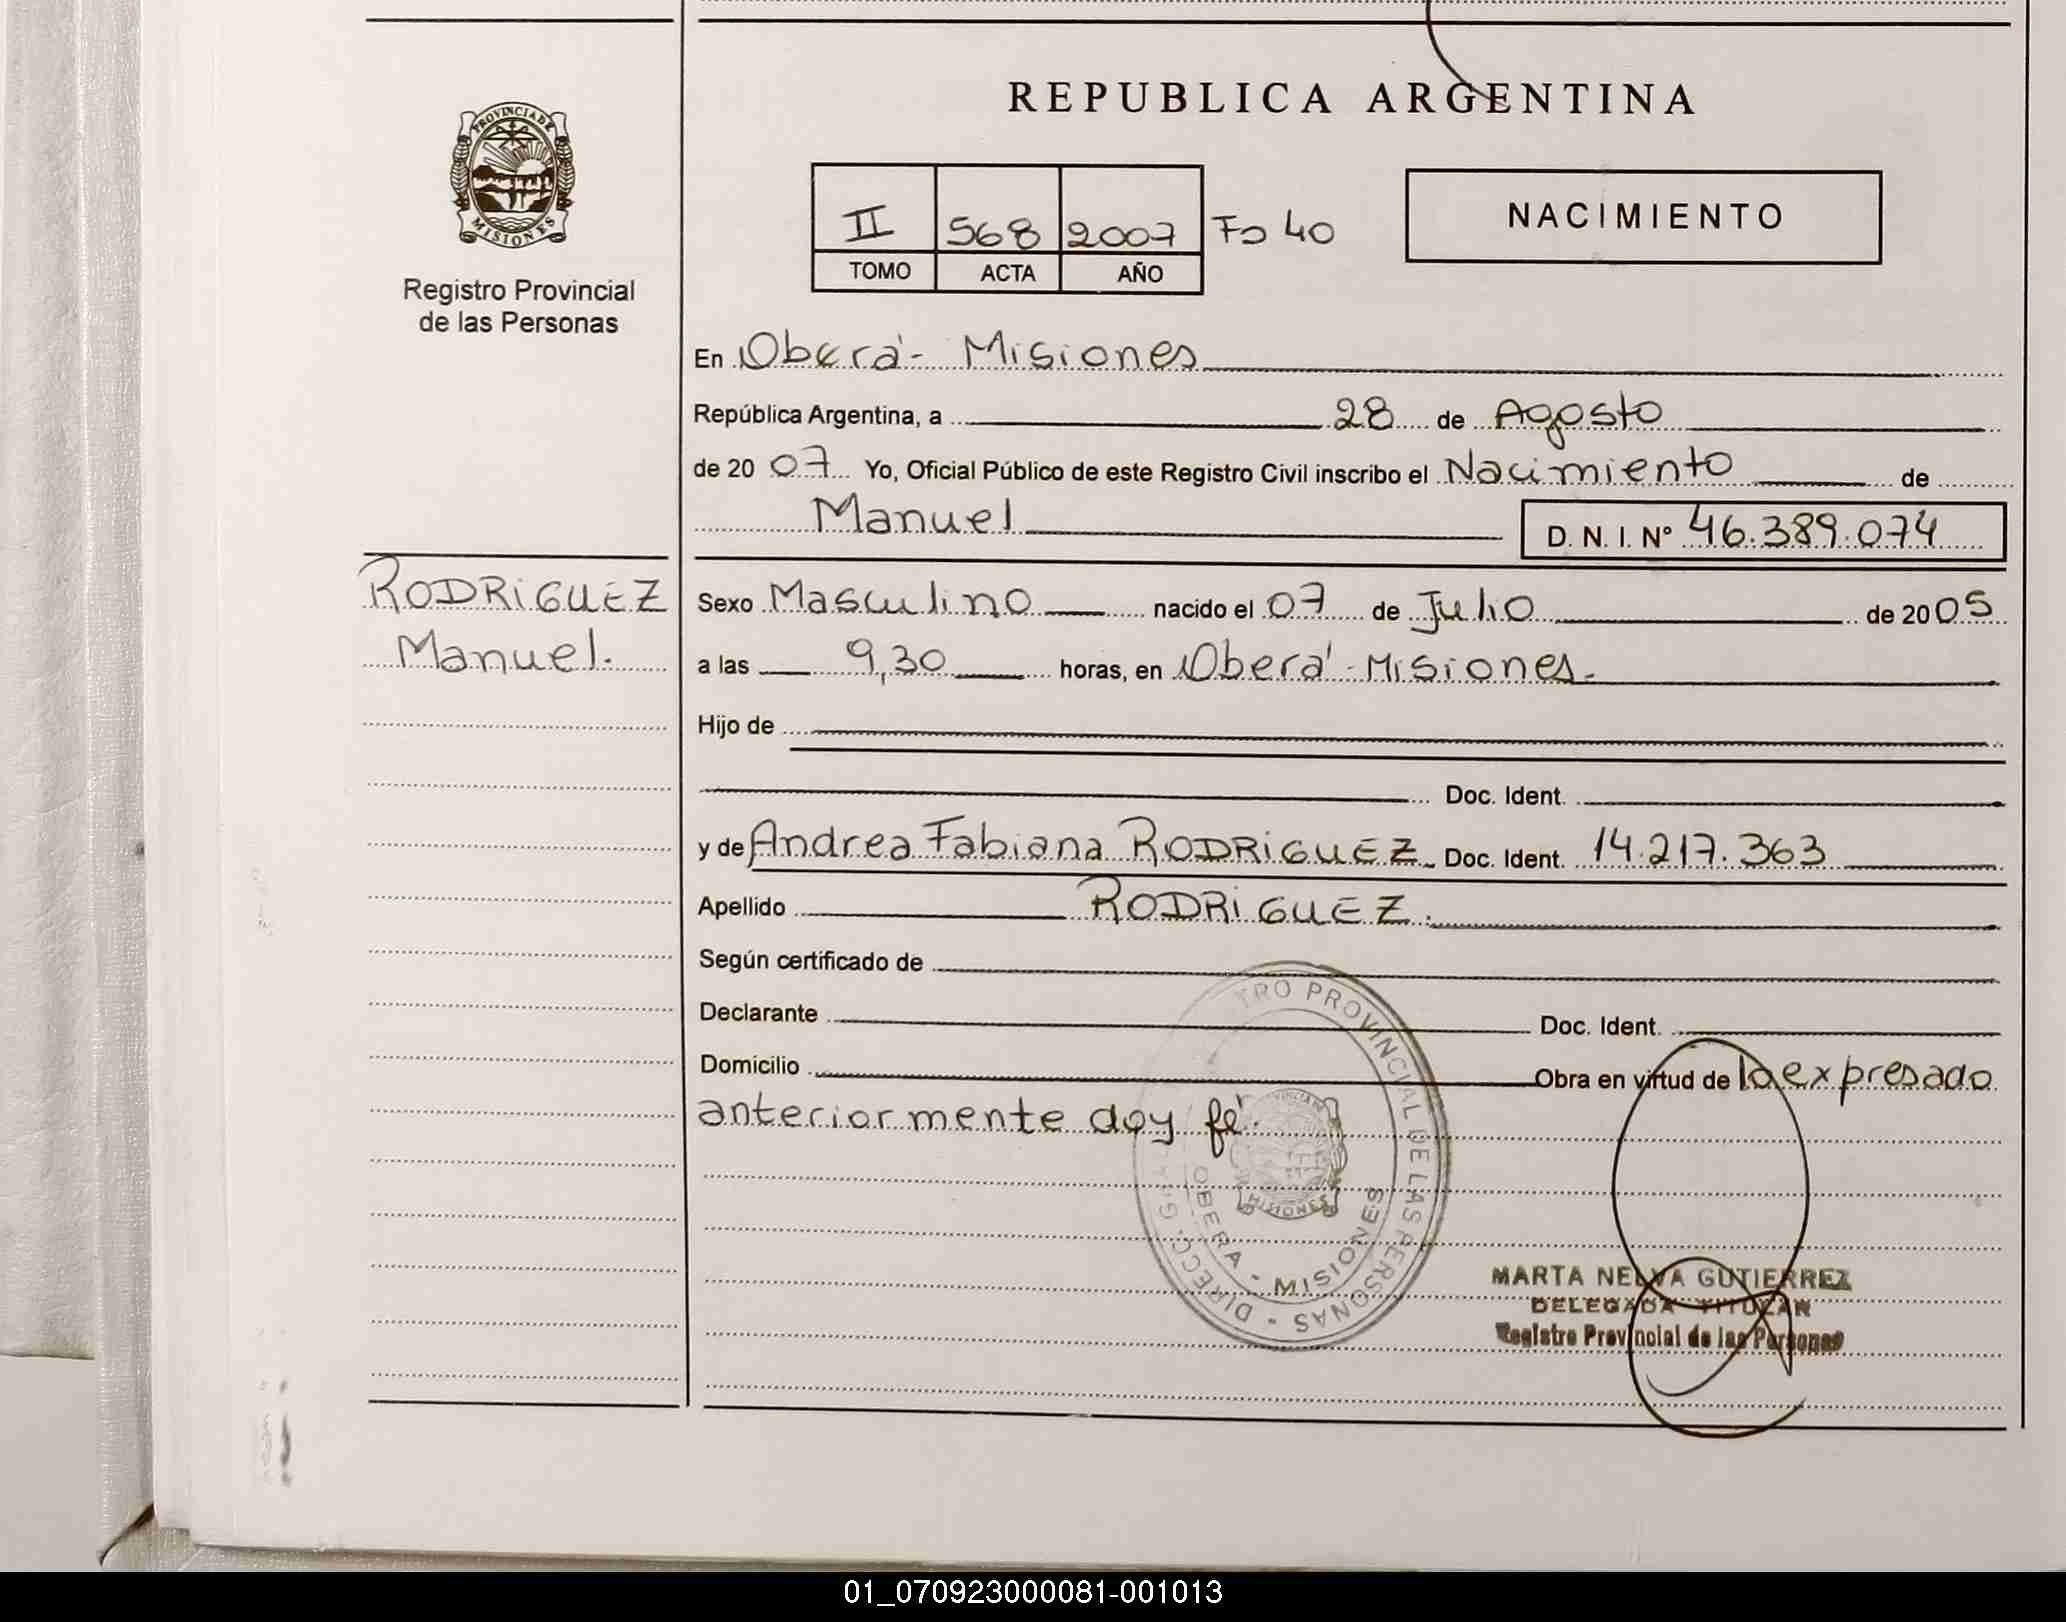 REPUBLICA ARGENTINA
PROVINCIA DE
MISIONES
Registro Provincial
de las Personas
II 568 2007 Fo 40
TOMO ACTA AÑO
NACIMIENTO
En Oberá - Misiones
República Argentina, a 28 de Agosto
de 20 07 Yo, Oficial Público de este Registro Civil inscribo el Nacimiento de
Manuel D. N. I. Nº 46.389.074
RODRIGUEZ
Manuel.
Sexo Masculino nacido el 07 de Julio de 20 05
a las 9,30 horas, en Oberá - Misiones.
Hijo de
Doc. Ident.
y de Andrea Fabiana RODRIGUEZ Doc. Ident. 14.217.363
Apellido RODRIGUEZ.
Según certificado de
Declarante Doc. Ident.
Domicilio Obra en virtud de lo expresado
anteriormente doy fé.
TRO PROVINCIAL DE LAS PERSONAS - DIRECC. GRAL
MISIONES
OBERA - MISIONES
MARTA NELVA GUTIERREZ
DELEGADA TITULAR
Registro Provincial de las Personas
01_070923000081-001013